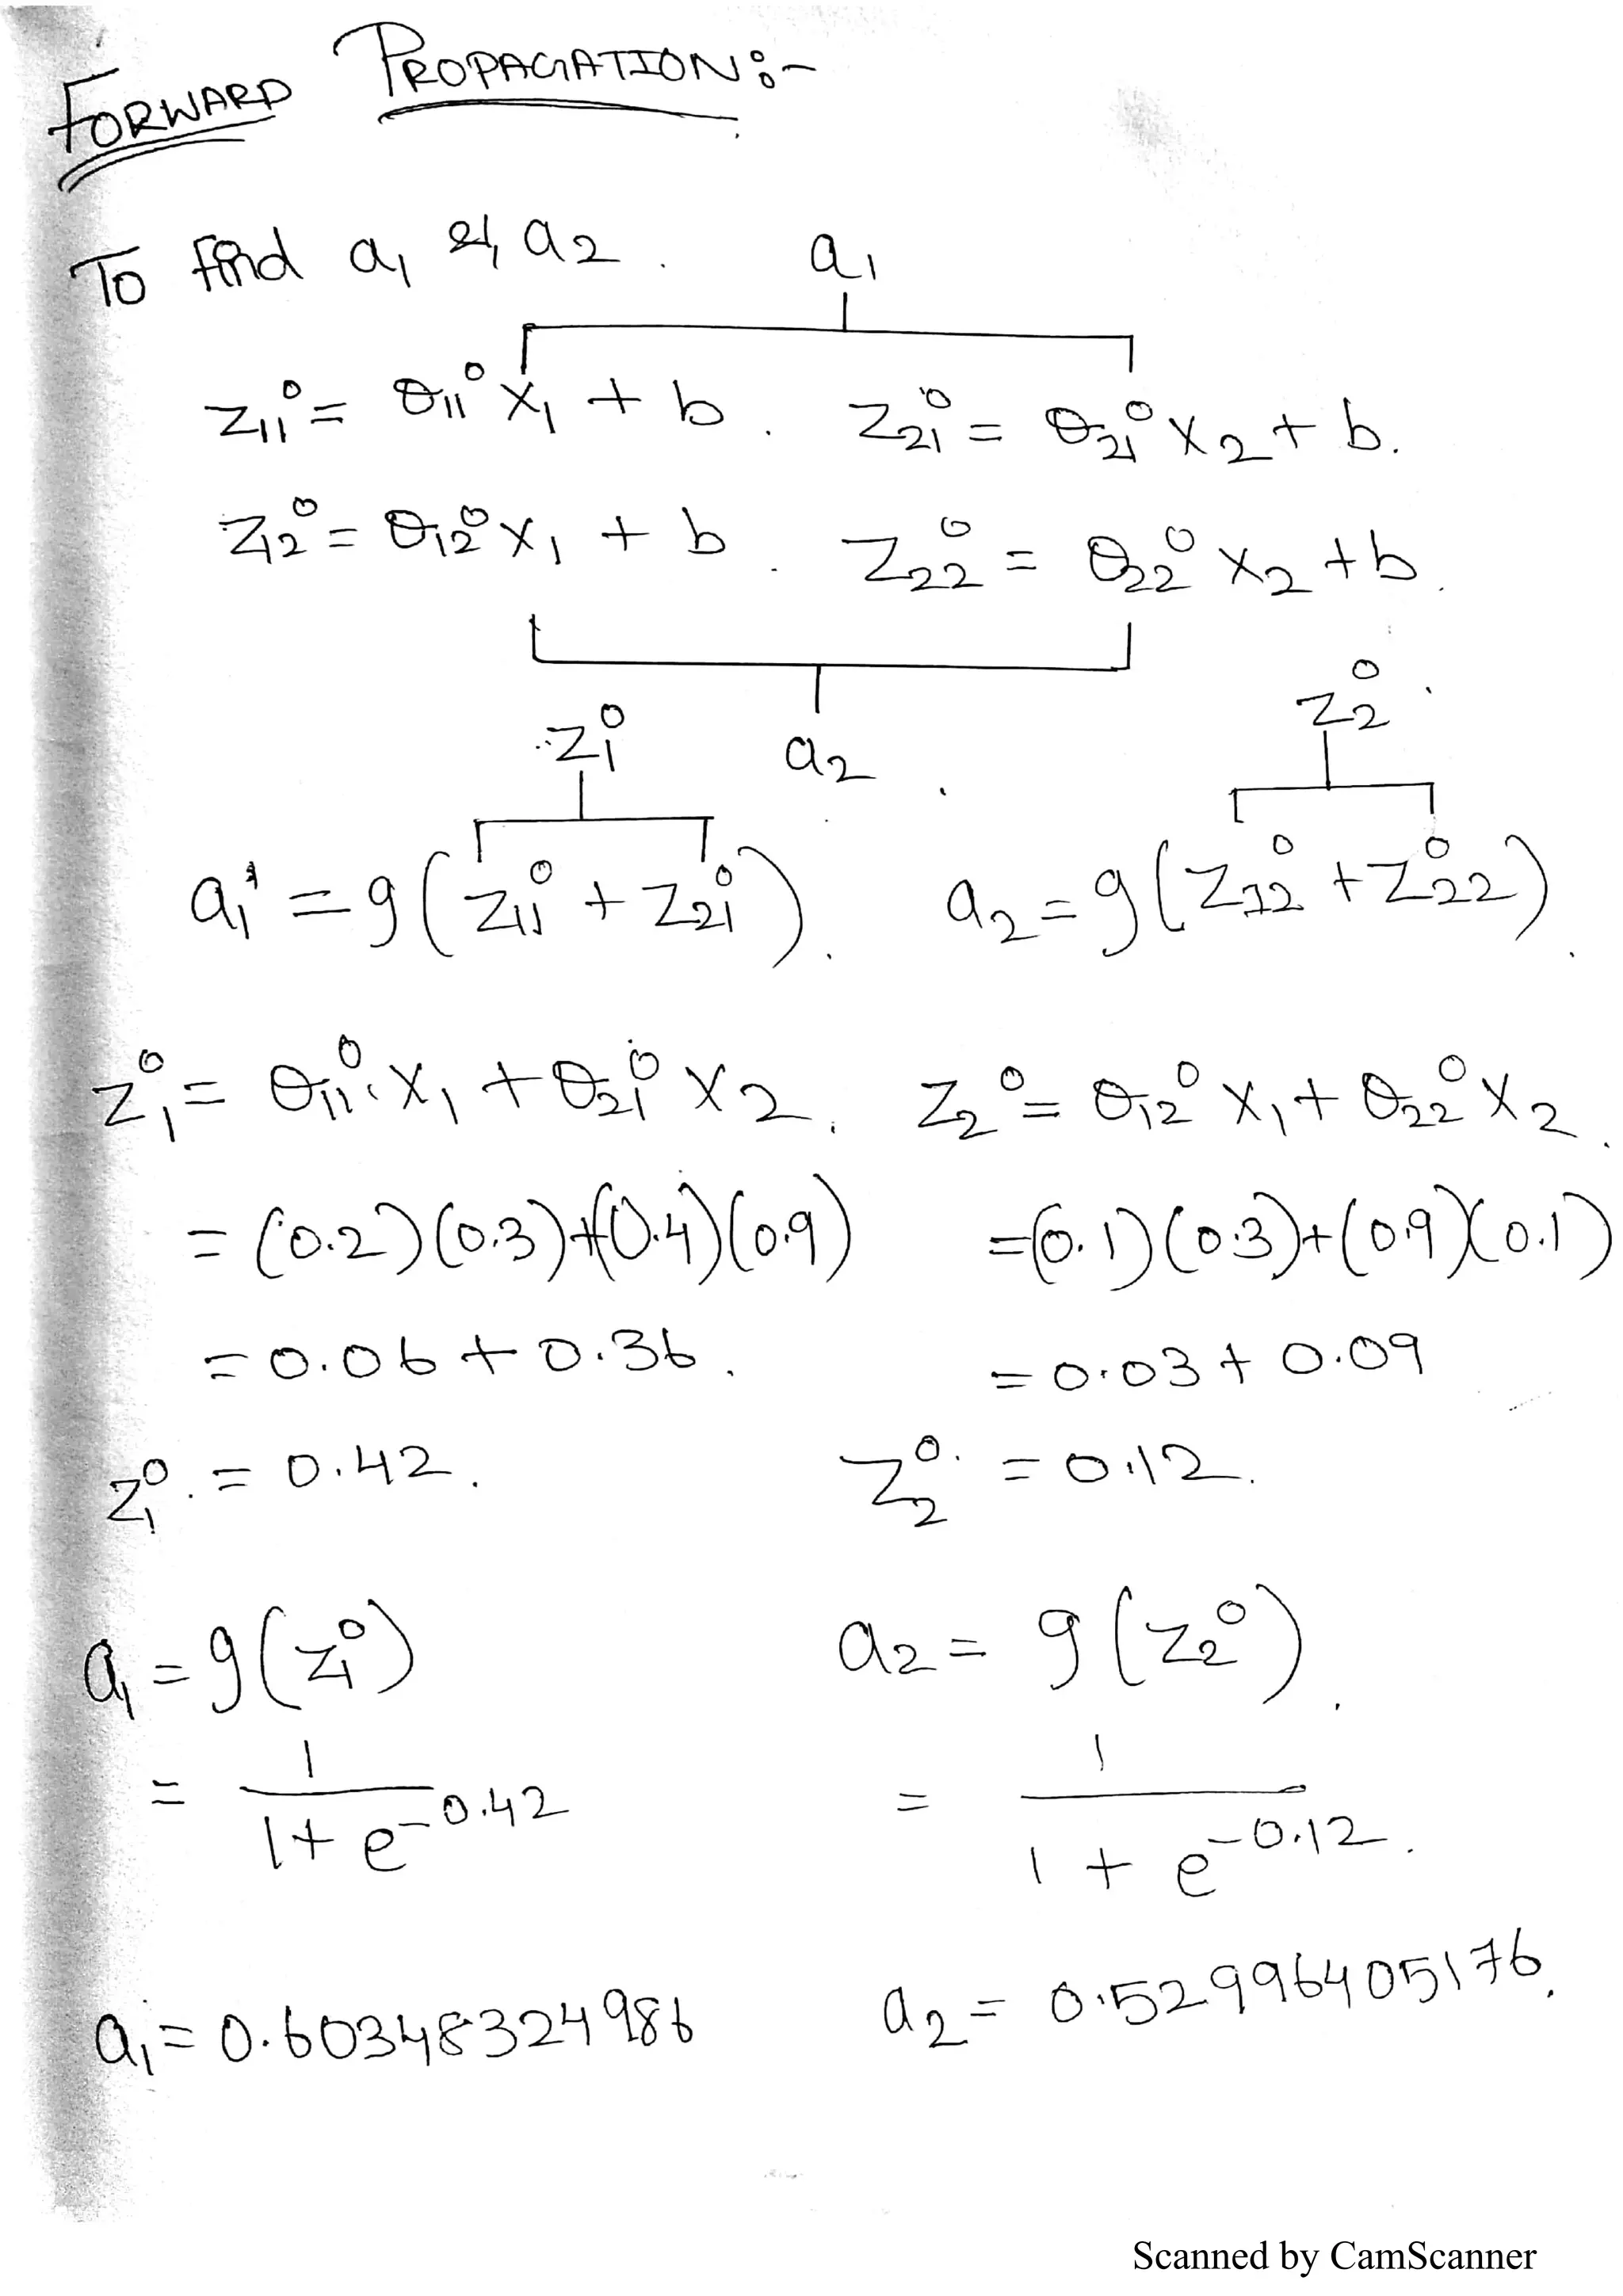 FORWARD PROPAGATION:-
To find a₁ & a₂.
a₁
z₁₁⁰ = θ₁₁⁰ x₁ + b. z₂₁⁰ = θ₂₁⁰ x₂ + b.
z₁₂⁰ = θ₁₂⁰ x₁ + b. z₂₂⁰ = θ₂₂⁰ x₂ + b.
z₁⁰ a₂. z₂⁰
a₁¹ = g(z₁₁⁰ + z₂₁⁰). a₂ = g(z₁₂⁰ + z₂₂⁰).
z₁⁰ = θ₁₁⁰.x₁ + θ₂₁⁰ x₂. z₂⁰ = θ₁₂⁰ x₁ + θ₂₂⁰ x₂.
= (0.2)(0.3)+(0.4)(0.9) =(0.1)(0.3)+(0.9)(0.1)
= 0.06 + 0.36. = 0.03 + 0.09
z₁⁰. = 0.42. z₂⁰. = 0.12.
a₁ = g(z₁⁰) a₂ = g(z₂⁰).
= 1 / 1 + e^-0.42 = 1 / 1 + e^-0.12.
a₁ = 0.60348324986 a₂ = 0.52996405176.
Scanned by CamScanner